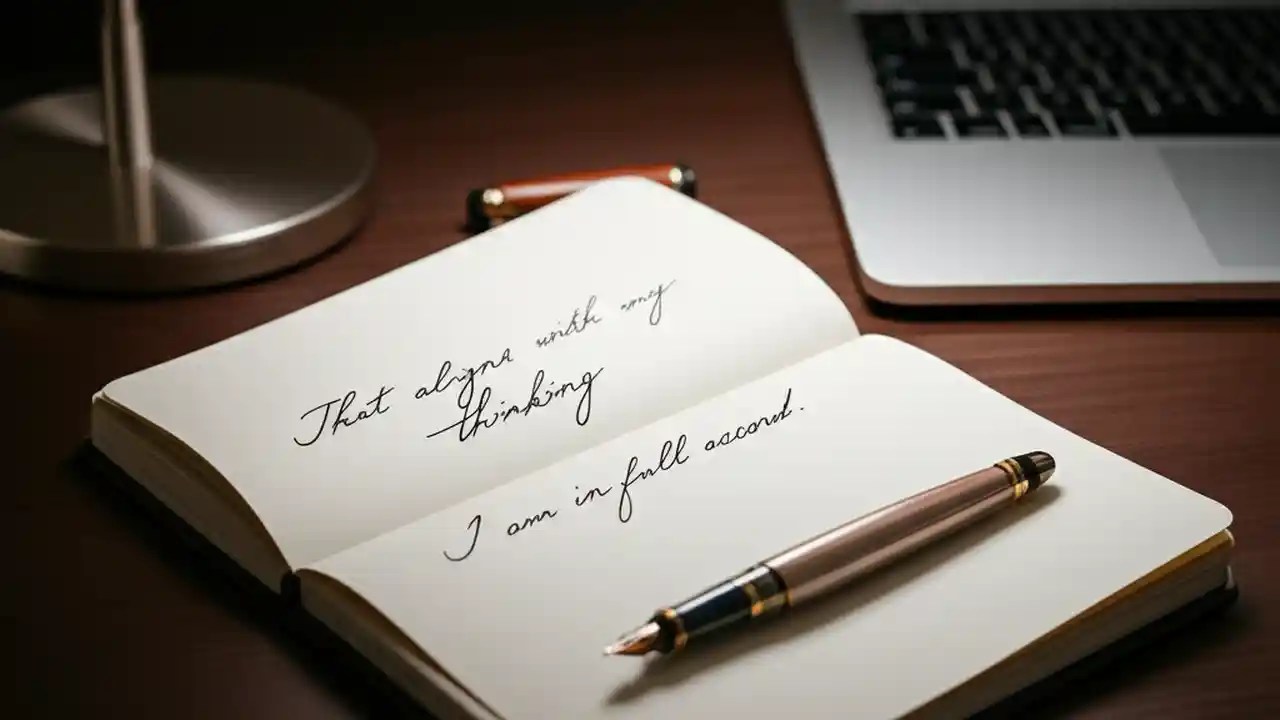 That aligns with my
thinking
I am in full accord.